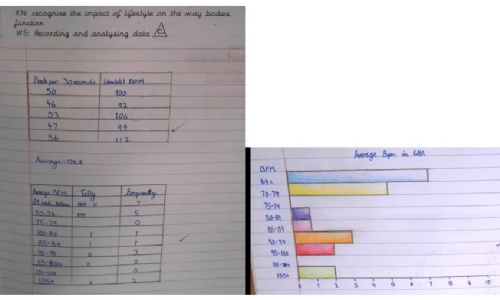 KN: recognise the impact of lifestyle on the way bodies
function
WS: Recording and analysing data
Beats per 30 seconds BPM
50 100
46 92
53 106
47 94
56 112
Average = 100.8
Average BPM Tally Frequency
69 and below 7
70-74 5
75-79 0
80-84 1
85-89 1
90-94 3
95-100 2
0
105+ 2
Average Bpm in
BPM
70-74
75-79
80-84
85-89
90-94
95-100
105+
0 1 2 3 4 5 6 7 8 9 10